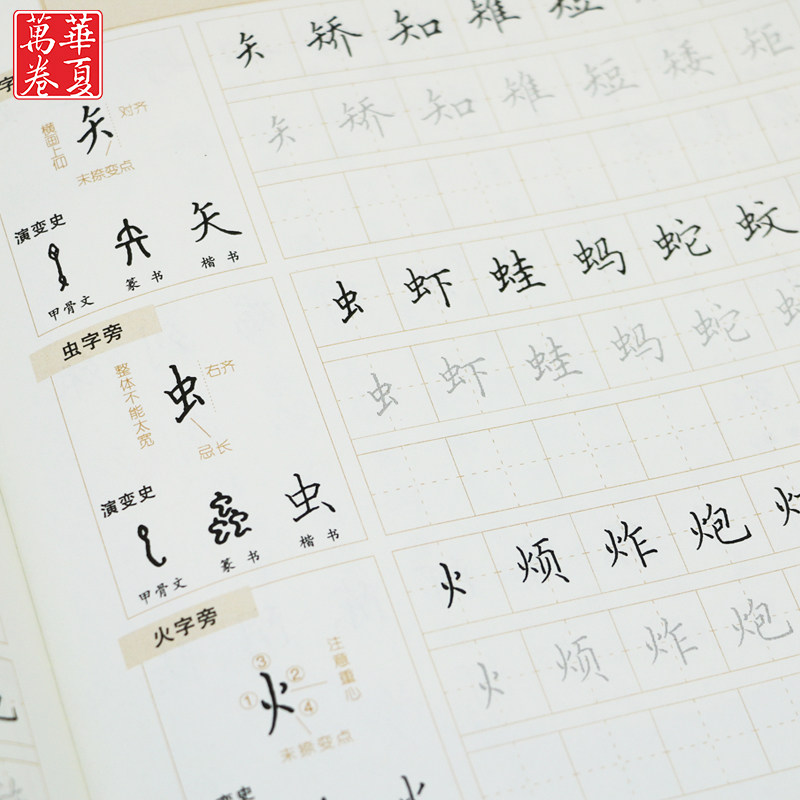 華夏
萬卷
字
矢 矫 知 雉 短
对齐
矢
横画上仰
末捺变点
矢 矫 知 雉 短 矮 矩
演变史
矢
甲骨文 篆书 楷书
虫字旁
虫 虾 蛙 蚂 蛇 蚊
整体不能太宽
虫
右齐
忌长
虫 虾 蛙 蚂 蛇
演变史
虫
甲骨文 篆书 楷书
火字旁
火 烦 炸 炮
③
① ②
④
火
注意重心
末捺变点
火 烦 炸 炮
演变史